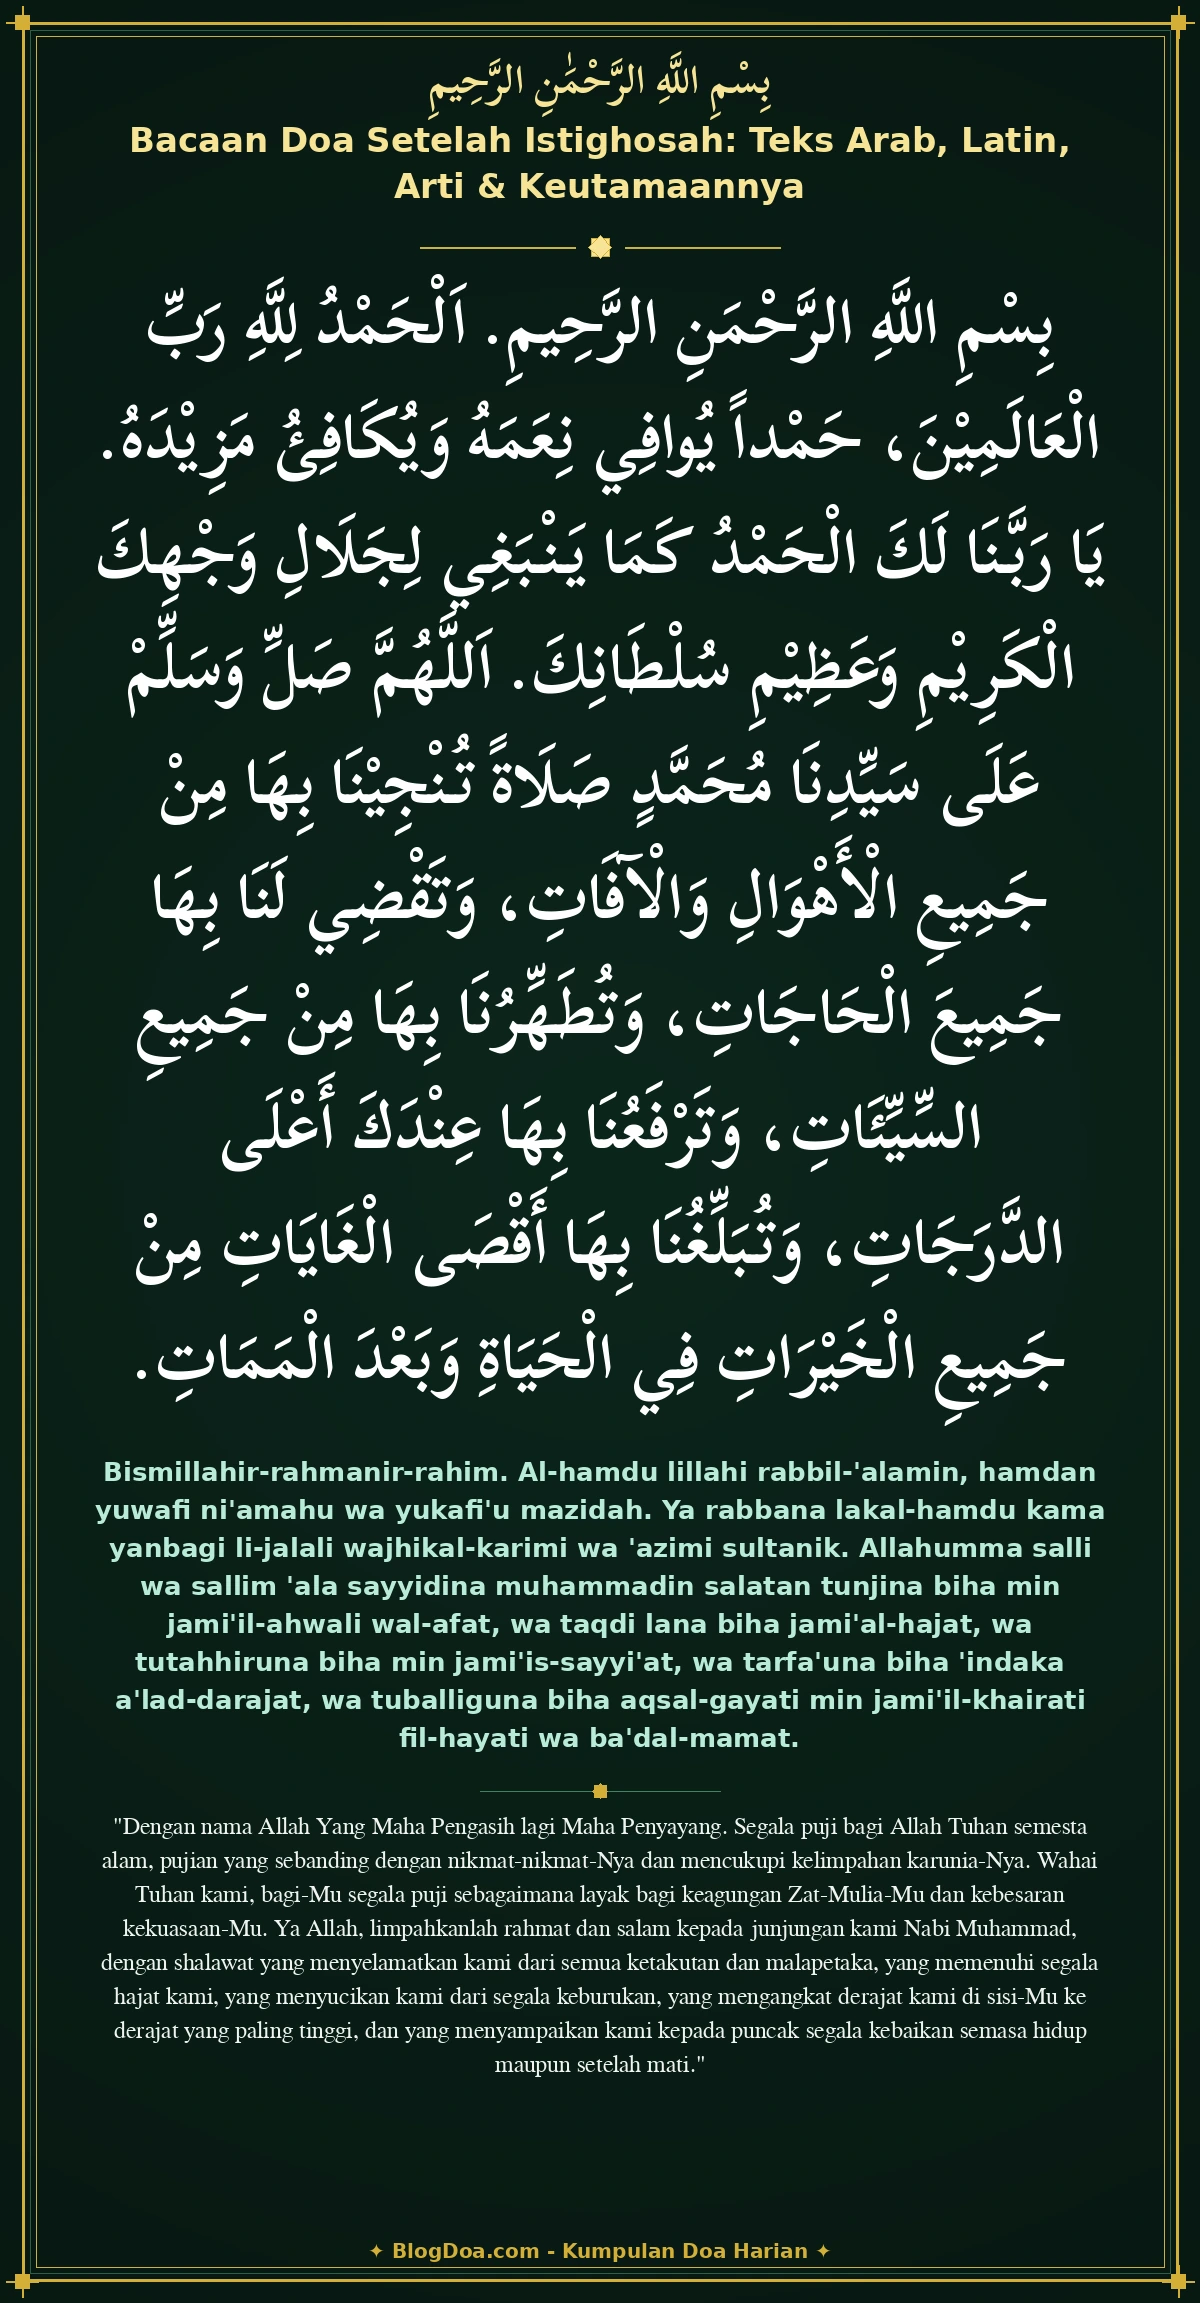 بِسْمِ اللَّهِ الرَّحْمَٰنِ الرَّحِيمِ
Bacaan Doa Setelah Istighosah: Teks Arab, Latin,
Arti & Keutamaannya
بِسْمِ اللَّهِ الرَّحْمَنِ الرَّحِيمِ. اَلْحَمْدُ لِلَّهِ رَبِّ
الْعَالَمِيْنَ، حَمْداً يُوافِي نِعَمَهُ وَيُكَافِئُ مَزِيْدَهُ.
يَا رَبَّنَا لَكَ الْحَمْدُ كَمَا يَنْبَغِي لِجَلَالِ وَجْهِكَ
الْكَرِيْمِ وَعَظِيْمِ سُلْطَانِكَ. اَللَّهُمَّ صَلِّ وَسَلِّمْ
عَلَى سَيِّدِنَا مُحَمَّدٍ صَلَاةً تُنْجِيْنَا بِهَا مِنْ
جَمِيعِ الْأَهْوَالِ وَالْآفَاتِ، وَتَقْضِي لَنَا بِهَا
جَمِيعَ الْحَاجَاتِ، وَتُطَهِّرُنَا بِهَا مِنْ جَمِيعِ
السَّيِّئَاتِ، وَتَرْفَعُنَا بِهَا عِنْدَكَ أَعْلَى
الدَّرَجَاتِ، وَتُبَلِّغُنَا بِهَا أَقْصَى الْغَايَاتِ مِنْ
جَمِيعِ الْخَيْرَاتِ فِي الْحَيَاةِ وَبَعْدَ الْمَمَاتِ.
Bismillahir-rahmanir-rahim. Al-hamdu lillahi rabbil-'alamin, hamdan
yuwafi ni'amahu wa yukafi'u mazidah. Ya rabbana lakal-hamdu kama
yanbagi li-jalali wajhikal-karimi wa 'azimi sultanik. Allahumma salli
wa sallim 'ala sayyidina muhammadin salatan tunjina biha min
jami'il-ahwali wal-afat, wa taqdi lana biha jami'al-hajat, wa
tutahhiruna biha min jami'is-sayyi'at, wa tarfa'una biha 'indaka
a'lad-darajat, wa tuballiguna biha aqsal-gayati min jami'il-khairati
fil-hayati wa ba'dal-mamat.
"Dengan nama Allah Yang Maha Pengasih lagi Maha Penyayang. Segala puji bagi Allah Tuhan semesta
alam, pujian yang sebanding dengan nikmat-nikmat-Nya dan mencukupi kelimpahan karunia-Nya. Wahai
Tuhan kami, bagi-Mu segala puji sebagaimana layak bagi keagungan Zat-Mulia-Mu dan kebesaran
kekuasaan-Mu. Ya Allah, limpahkanlah rahmat dan salam kepada junjungan kami Nabi Muhammad,
dengan shalawat yang menyelamatkan kami dari semua ketakutan dan malapetaka, yang memenuhi segala
hajat kami, yang menyucikan kami dari segala keburukan, yang mengangkat derajat kami di sisi-Mu ke
derajat yang paling tinggi, dan yang menyampaikan kami kepada puncak segala kebaikan semasa hidup
maupun setelah mati."
✦ BlogDoa.com - Kumpulan Doa Harian ✦